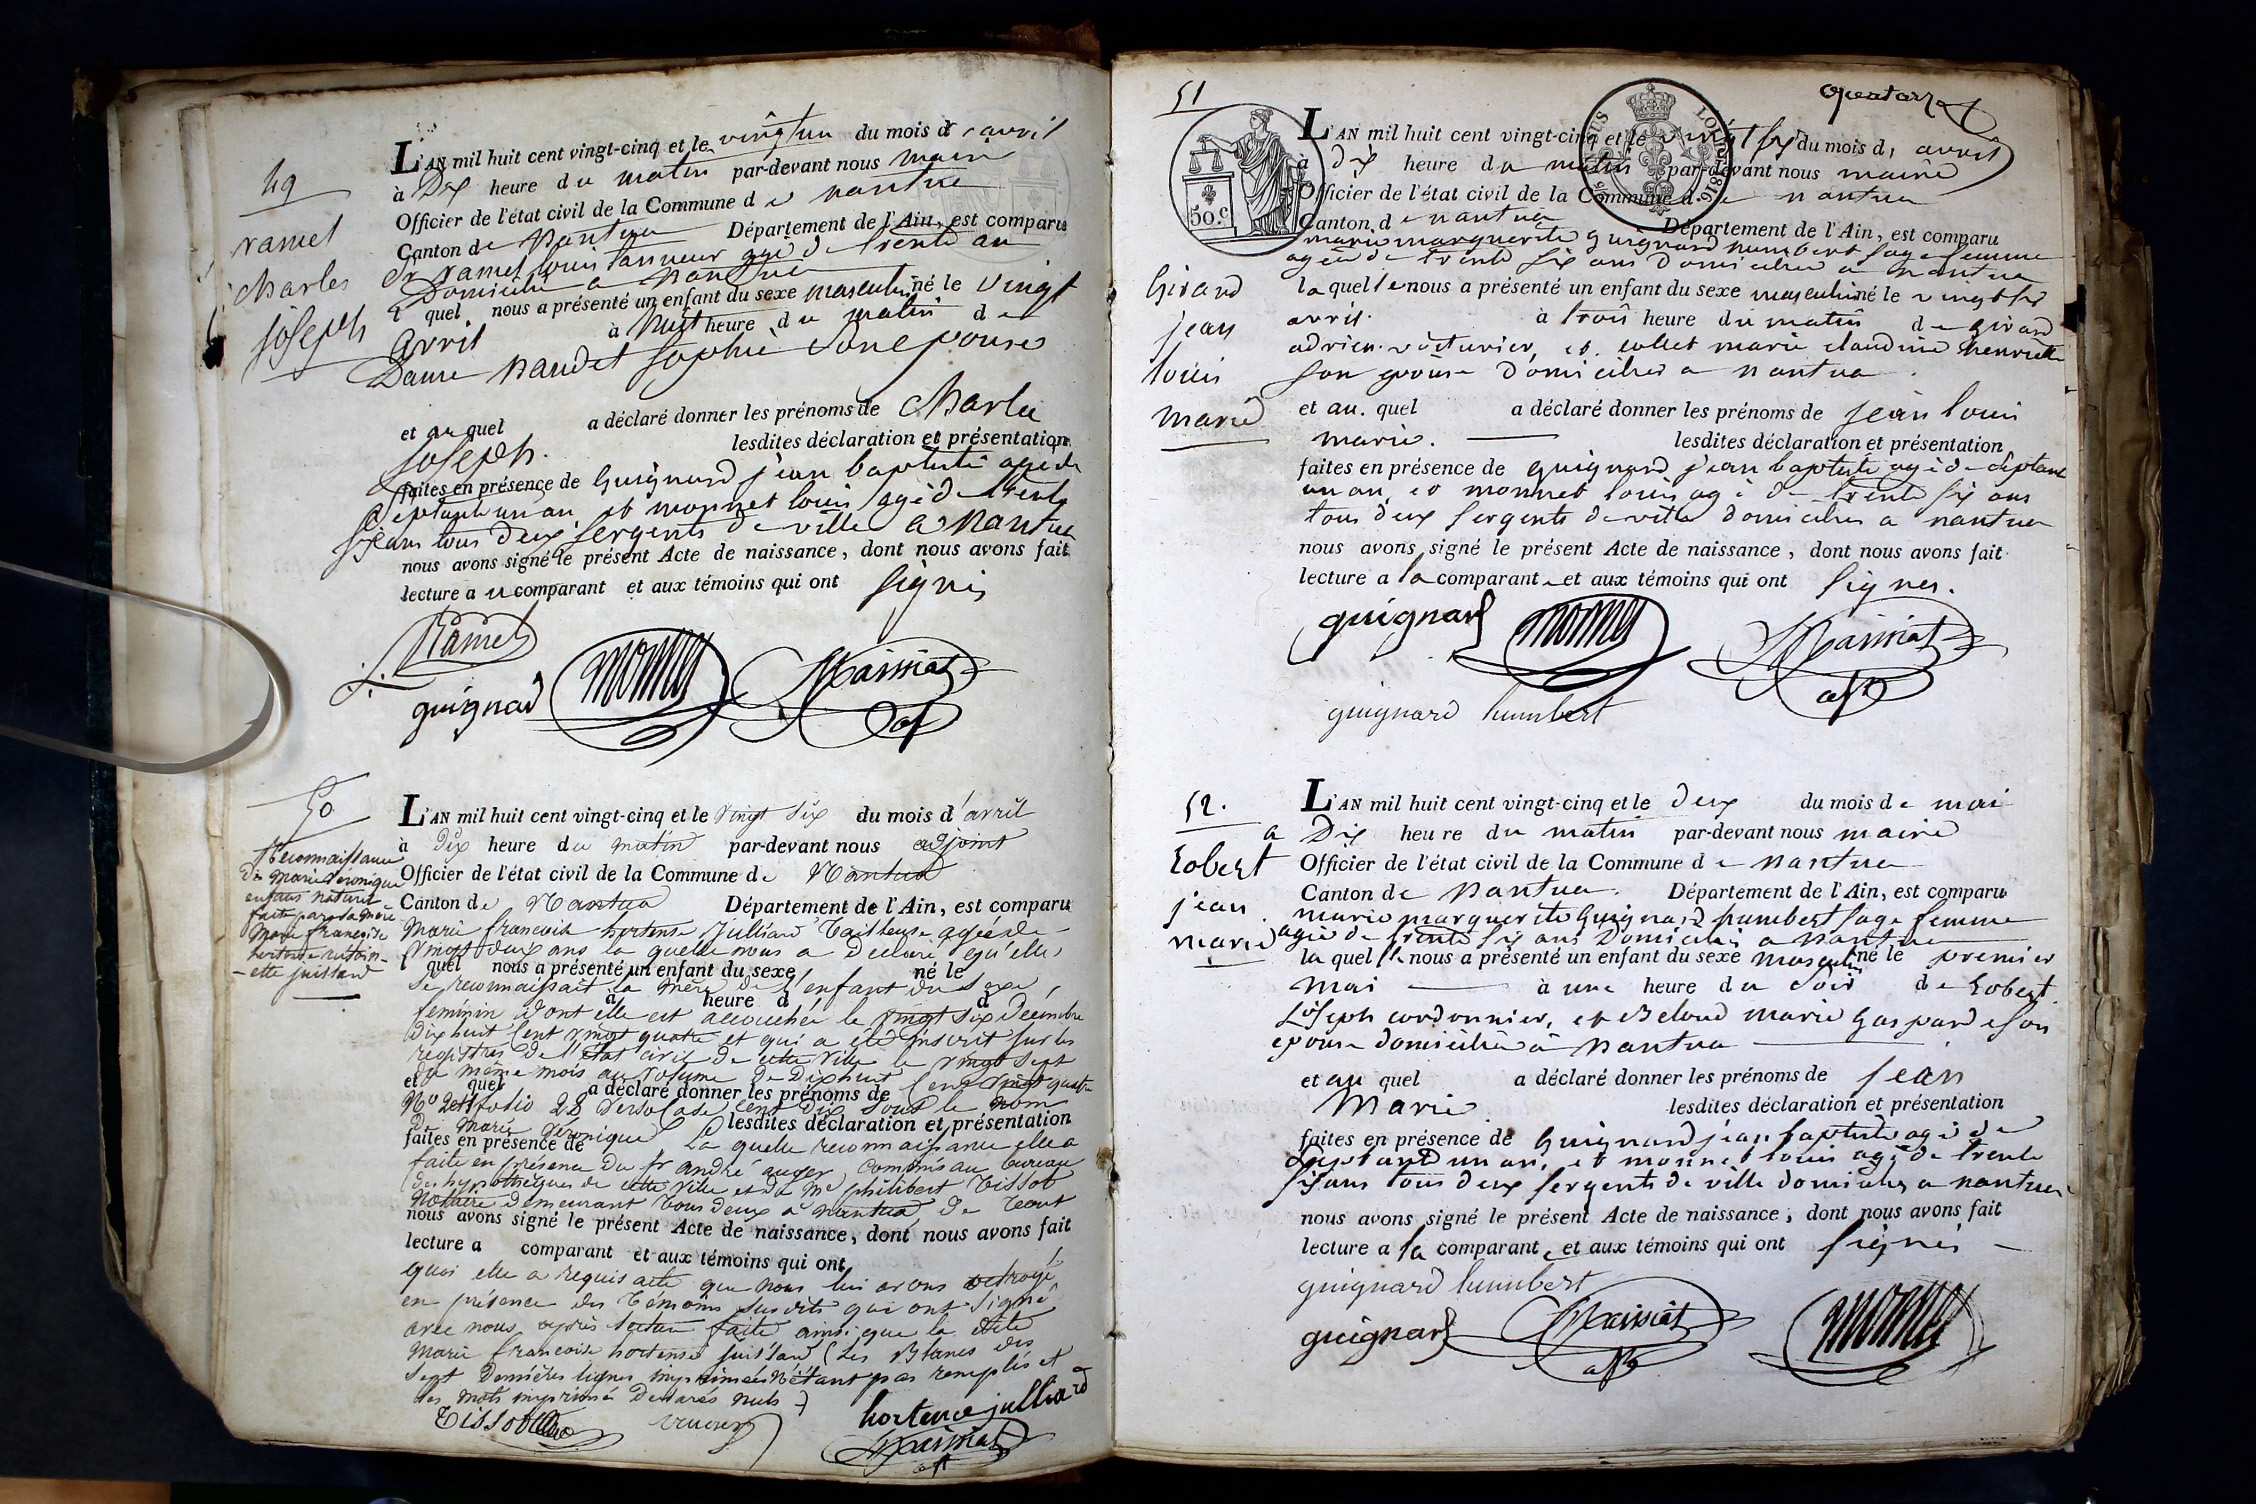 49
ramel
charles
joseph
L'AN mil huit cent vingt-cinq et le vingt un du mois d'avril
à Dix heure du matin par-devant nous maire
Officier de l'état civil de la Commune de nantua
Canton de Nantua Département de l'Ain, est comparu
Sr ramel louis tanneur agé de trente an
Domicilié a nantua
quel nous a présenté un enfant du sexe masculin né le vingt
avril à huit heure du matin de
Dame naudet sophie son epouse
et au quel a déclaré donner les prénoms de charle
joseph. lesdites déclaration et présentation
faites en présence de Guignard jean baptiste agé de
septante un an et monnet louis agé de trente
six ans tous deux sergents de ville a nantua
nous avons signé le présent Acte de naissance, dont nous avons fait
lecture au comparant et aux témoins qui ont signés
Ramel
guignard monnet
50
Reconnaissance
de marie Veronique
enfant naturel
faite par sa mere
Marie françoise
hortense
L'AN mil huit cent vingt-cinq et le vingt six du mois d'avril
à dix heure du matin par-devant nous adjoint
Officier de l'état civil de la Commune de Nantua
Canton de Nantua Département de l'Ain, est comparu
Marie francoise hortense Julliard Tailleuse agée de
vingt deux ans la quelle nous a déclaré qu'elle
quel nous a présenté un enfant du sexe né le
se reconnaissait la mère de l'enfant du sexe
à heure d d
féminin dont elle est accouchée le vingt six Décembre
dix huit Cent vingt quatre et qui a été inscrit sur les
registres de l'état civil de cette ville le vingt sept
du même mois au volume de Dixhuit Cent vingt quatre
et quel a déclaré donner les prénoms de
folio 28 verso Case cent dix sous le nom
lesdites déclaration et présentation
de Marie Véronique La quelle reconnaissance elle a
faites en présence de
faite en présence du Sr andré auger, commis au bureau
des hypothèques de cette ville et de Me philibert Tissot
Notaire demeurant Tous deux a nantua, De tout
nous avons signé le présent Acte de naissance, dont nous avons fait
lecture a comparant et aux témoins qui ont
quoi elle a requis acte que nous lui avons octroyé
en présence des Témoins susdits qui ont signé
avec nous après lecture faite ainsi que la dite
Marie francoise hortense Juillard (Les Blancs des
sept dernières lignes imprimées n'étant pas remplis et
les mots imprimés Déclarés nuls)
Tissot hortence julliard
51
Girard
jean
louis
marie
50.c
L'AN mil huit cent vingt-cinq et le vingt six du mois d'avril
à dix heure du matin par-devant nous maire
Officier de l'état civil de la Commune de nantua
Canton de nantua Département de l'Ain, est comparu
marie marguerite guignard humbert sage femme
agée de trente six ans domiciliée a nantua
la quelle nous a présenté un enfant du sexe masculin né le vingt six
avril. à trois heure du matin de girard
adrien voiturier, et collet marie claudine henriette
son epouse domicilies a nantua
et au quel a déclaré donner les prénoms de jean louis
marie. lesdites déclaration et présentation
faites en présence de guignard jean baptiste agé de septante
un an, et monnet louis agé de trente six ans
tous deux sergents de ville domicilies a nantua
nous avons signé le présent Acte de naissance, dont nous avons fait
lecture a la comparante et aux témoins qui ont signes.
guignard monnet
guignard humbert
52.
Lobert
jean
marie
L'AN mil huit cent vingt-cinq et le deux du mois de mai
a Dix heure du matin par-devant nous maire
Officier de l'état civil de la Commune de nantua
Canton de Nantua. Département de l'Ain, est comparu
marie marguerite Guignard humbert sage femme
agée de trente six ans Domiciliée a nantua
la quelle nous a présenté un enfant du sexe masculin né le premier
mai à une heure du soir de Lobert
Joseph cordonnier, et Beloud marie gasparde son
epouse domicilié a nantua
et au quel a déclaré donner les prénoms de jean
Marie lesdites déclaration et présentation
faites en présence de Guignard jean baptiste agé de
septante un an, et monnet louis agé de trente
six ans tous deux sergents de ville domicilies a nantua
nous avons signé le présent Acte de naissance, dont nous avons fait
lecture a la comparante et aux témoins qui ont signés
guignard humbert
guignard monnet